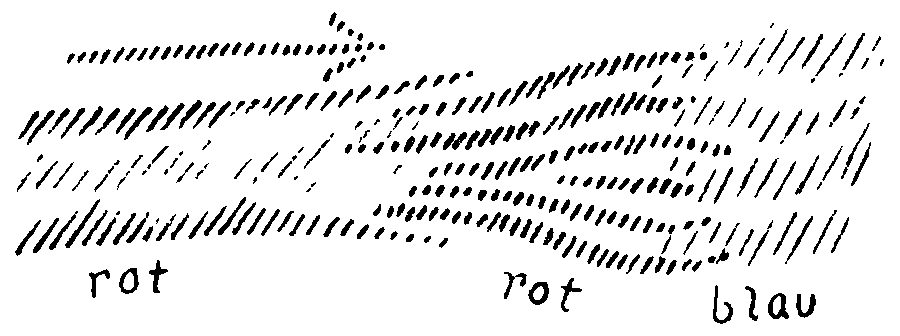 rot rot blau